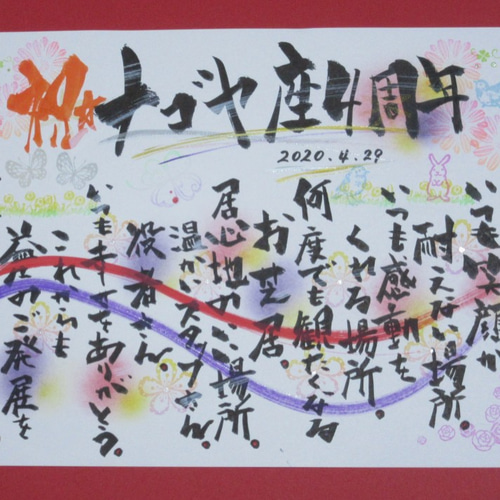 祝★ナゴヤ座4周年
2020.4.29
いつも笑顔が
耐えない場所.
いつも感動を
くれる場所.
何度でも観たくなる
お芝居.
居心地のいい場所
温かいスタッフさん
役者さん.
いつもすてきをありがとう.
これからも
益々のご発展を